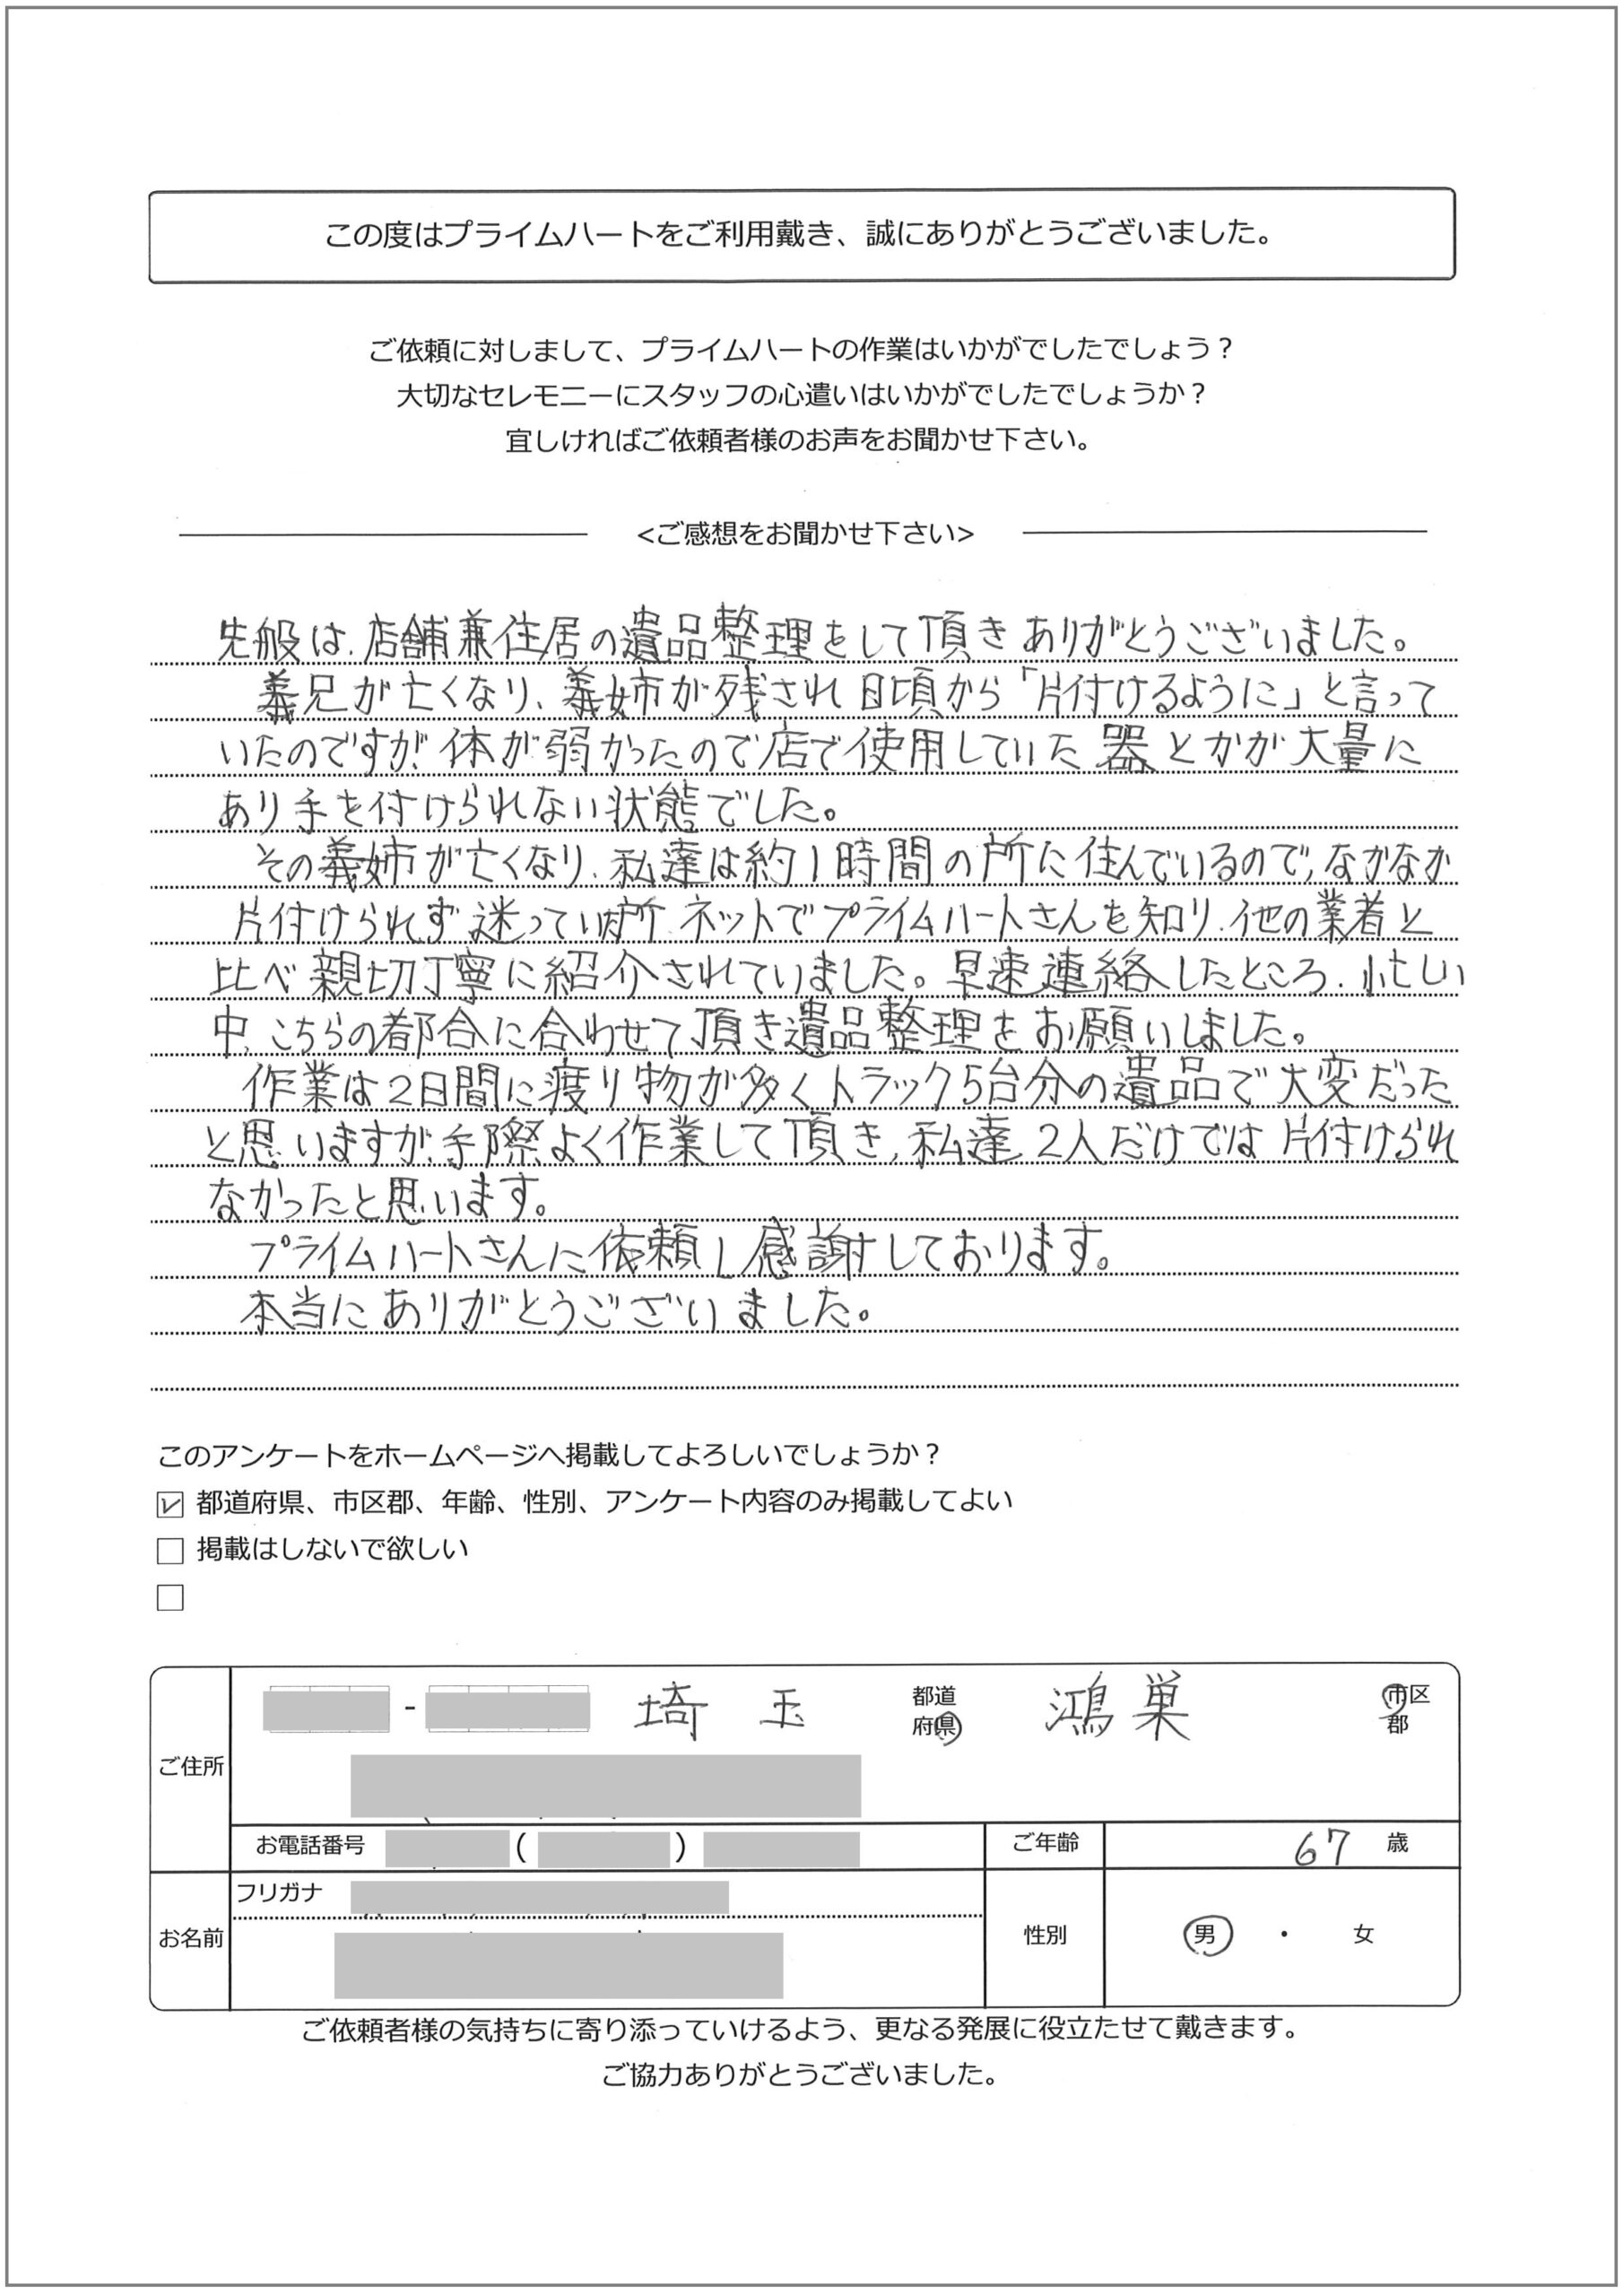 この度はプライムハートをご利用戴き、誠にありがとうございました。
ご依頼に対しまして、プライムハートの作業はいかがでしたでしょう？
大切なセレモニーにスタッフの心遣いはいかがでしたでしょうか？
宜しければご依頼者様のお声をお聞かせ下さい。
<ご感想をお聞かせ下さい>
先般は、店舗兼住居の遺品整理をして頂きありがとうございました。
義兄が亡くなり、義姉が残され日頃から「片付けるように」と言って
いたのですが、体が弱かったので店で使用していた器とかが大量に
あり手を付けられない状態でした。
その義姉が亡くなり、私達は約1時間の所に住んでいるので、なかなか
片付けられず迷っていた所、ネットでプライムハートさんを知り、他の業者と
比べ親切丁寧に紹介されていました。早速連絡したところ、忙しい
中、こちらの都合に合わせて頂き遺品整理をお願いしました。
作業は2日間に渡り物が多くトラック5台分の遺品で大変だった
と思いますが、手際よく作業して頂き、私達2人だけでは片付けられ
なかったと思います。
プライムハートさんに依頼し感謝しております。
本当にありがとうございました。
このアンケートをホームページへ掲載してよろしいでしょうか？
都道府県、市区郡、年齢、性別、アンケート内容のみ掲載してよい
掲載はしないで欲しい
ご住所 - 埼玉 都道府県 鴻巣 市区郡
お電話番号 ( ) ご年齢 67 歳
フリガナ
お名前 性別 男 ・ 女
ご依頼者様の気持ちに寄り添っていけるよう、更なる発展に役立たせて戴きます。
ご協力ありがとうございました。